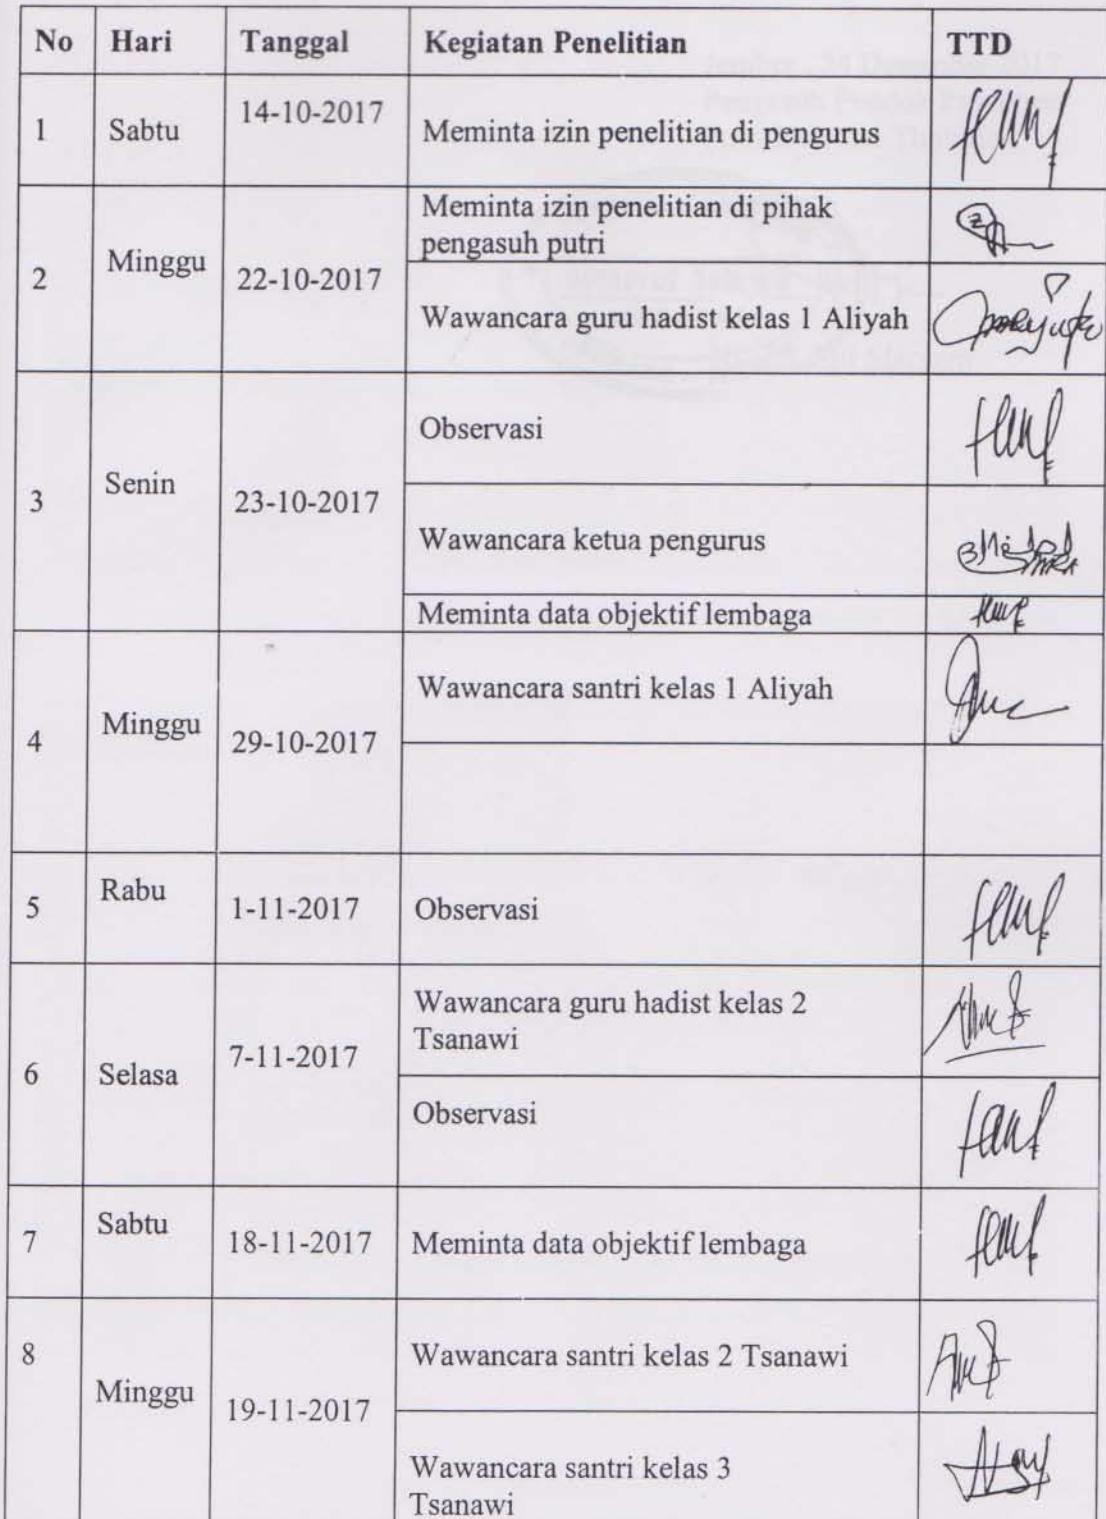 No Hari Tanggal Kegiatan Penelitian TTD
1 Sabtu 14-10-2017 Meminta izin penelitian di pengurus
2 Minggu 22-10-2017 Meminta izin penelitian di pihak
pengasuh putri
Wawancara guru hadist kelas 1 Aliyah
3 Senin 23-10-2017 Observasi
Wawancara ketua pengurus
Meminta data objektif lembaga
4 Minggu 29-10-2017 Wawancara santri kelas 1 Aliyah
5 Rabu 1-11-2017 Observasi
6 Selasa 7-11-2017 Wawancara guru hadist kelas 2
Tsanawi
Observasi
7 Sabtu 18-11-2017 Meminta data objektif lembaga
8 Minggu 19-11-2017 Wawancara santri kelas 2 Tsanawi
Wawancara santri kelas 3
Tsanawi